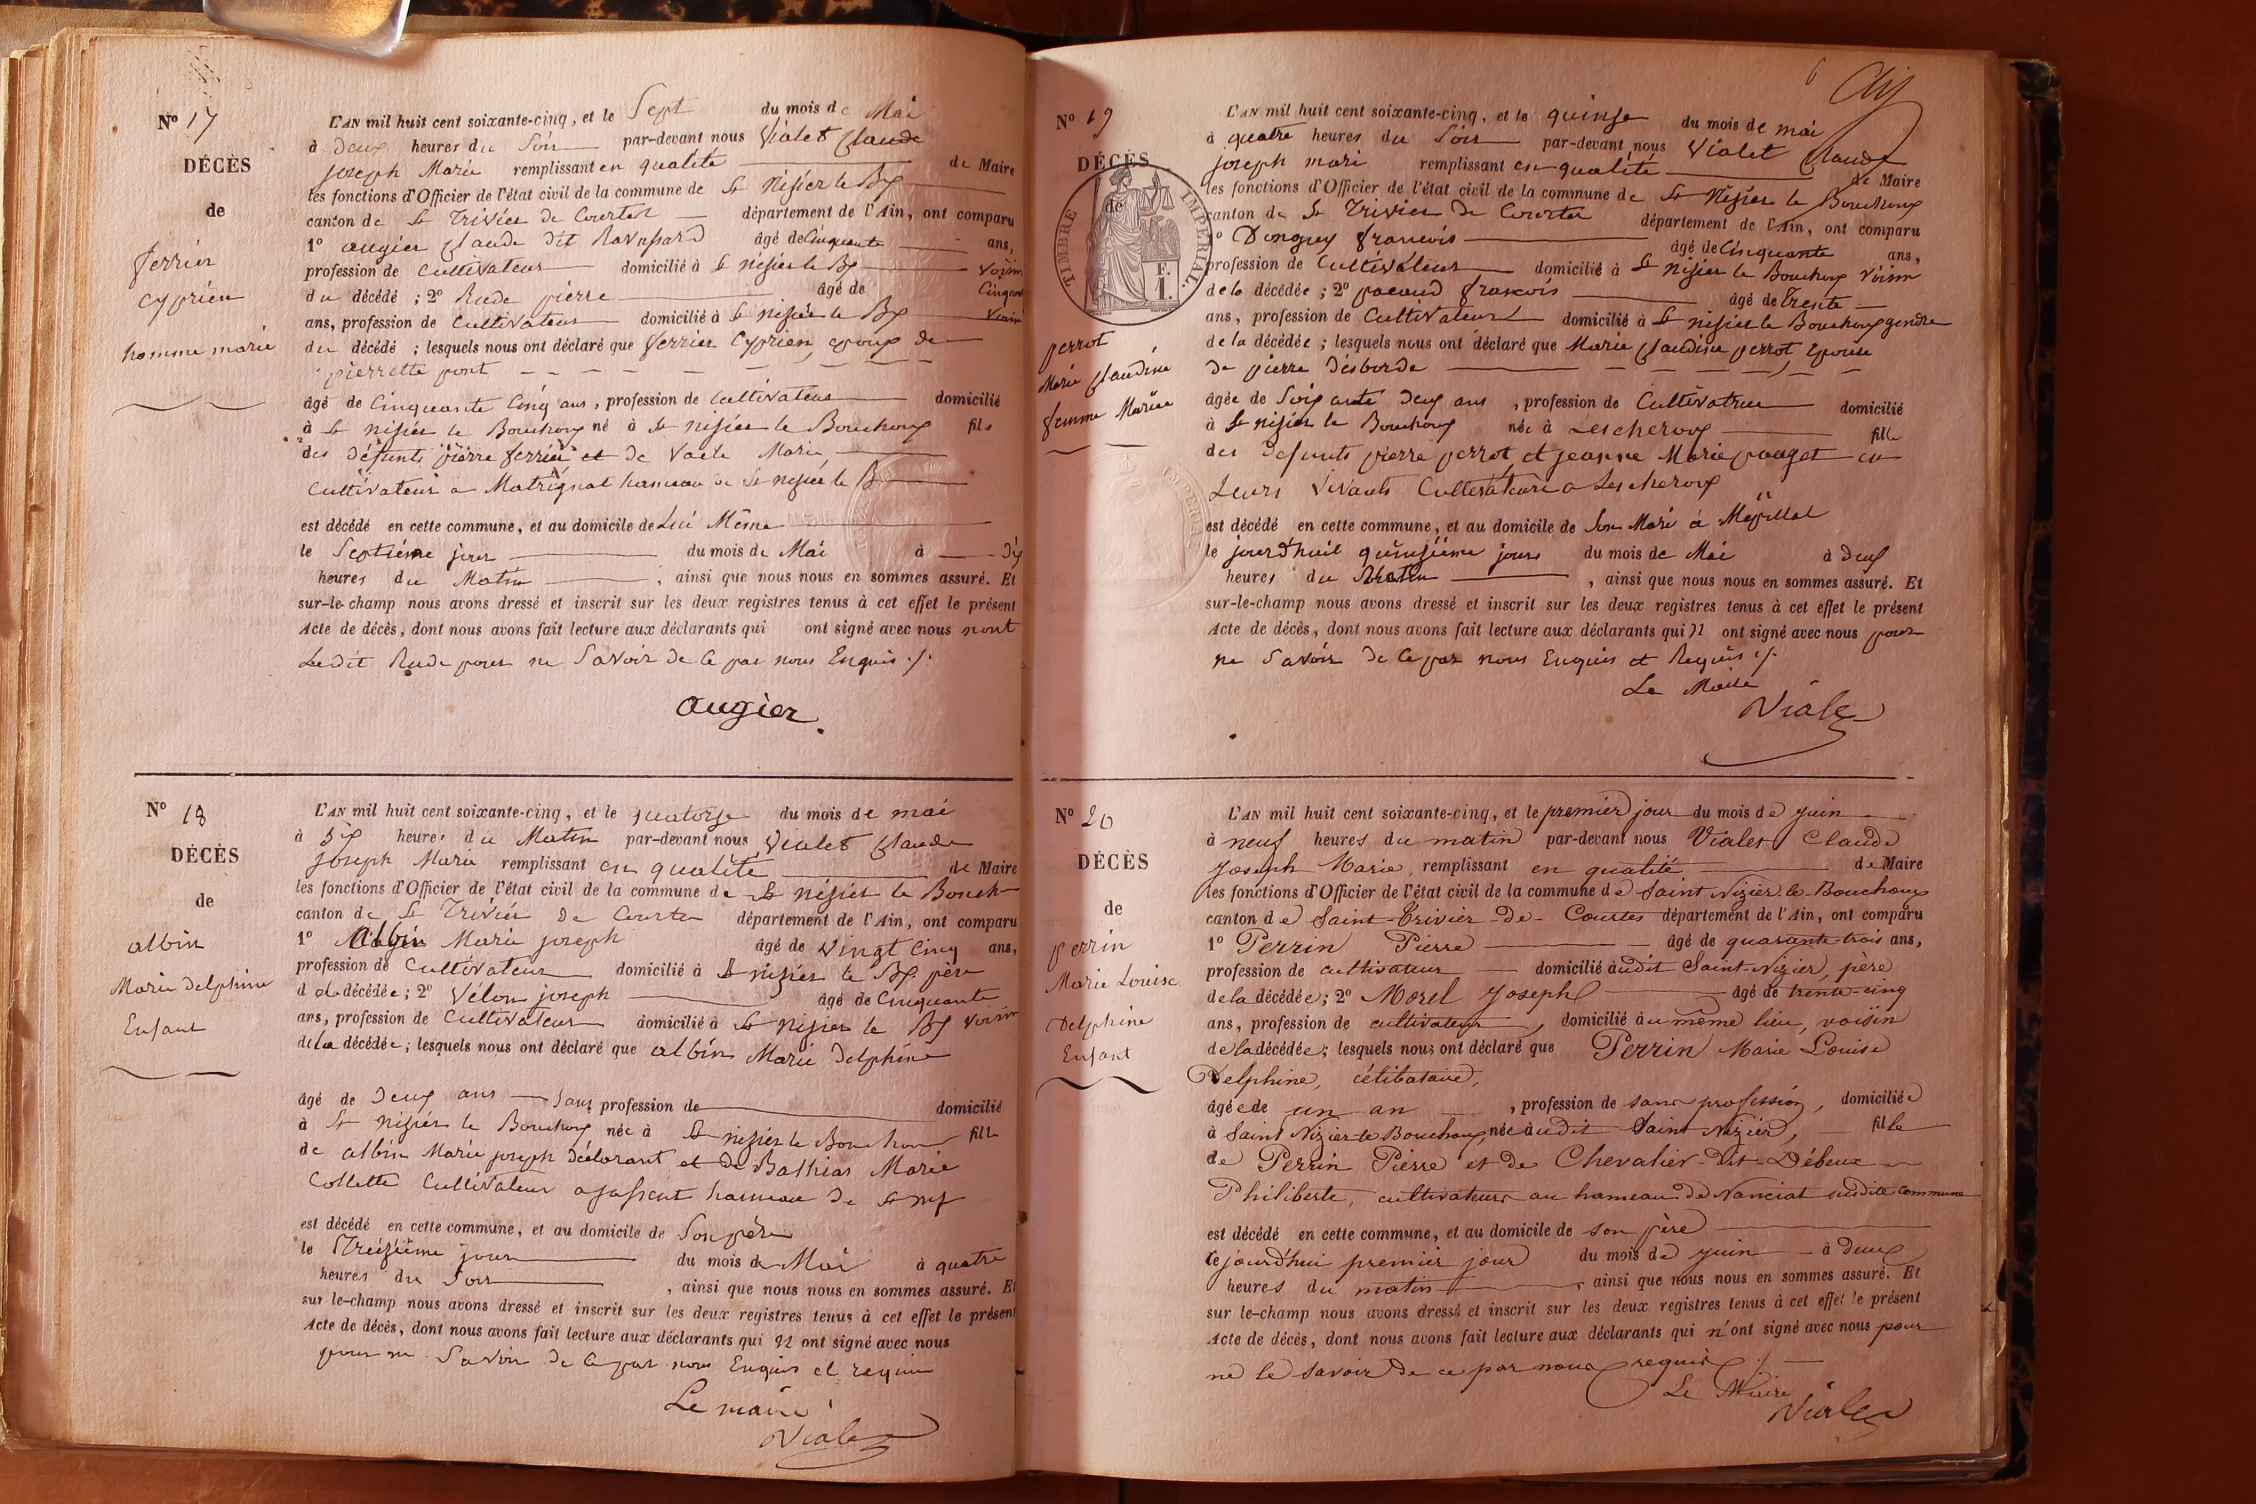 Nº 17
DÉCÈS
de
ferrier
Cyprien
homme marié
L'AN mil huit cent soixante-cinq, et le Sept du mois de Mai
à Deux heures du Soir par-devant nous Vialet Claude
Joseph Marie remplissant en qualité de Maire
les fonctions d'Officier de l'état civil de la commune de St Nisier le Bx
canton de St Trivier de Courtes département de l'Ain, ont comparu
1º augier Claude dit Ravassard âgé de Cinquante ans,
profession de Cultivateur domicilié à St nisier le Bx Voisin
du décédé ; 2º Rude pierre âgé de Cinquante
ans, profession de Cultivateur domicilié à St nisier le Bx Voisin
du décédé ; lesquels nous ont déclaré que ferrier Cyprien, epoux de
pierrette pont
âgé de Cinquante Cinq ans, profession de Cultivateur domicilié
à St nisier le Bouchoux né à St nisier le Bouchoux fils
des défunts pierre ferrier et de Marie
Cultivateur a Matrignat hameau de St nisier le B
est décédé en cette commune, et au domicile de Lui Même
le Septième jour du mois de Mai à Dix
heures du Matin, ainsi que nous nous en sommes assuré. Et
sur-le-champ nous avons dressé et inscrit sur les deux registres tenus à cet effet le présent
Acte de décès, dont nous avons fait lecture aux déclarants qui ont signé avec nous nont
Ledit Rude pour ne Savoir de Ce par nous Enquis ./.
augier
Nº 18
DÉCÈS
de
albin
Marie Delphine
Enfant
L'AN mil huit cent soixante-cinq, et le quatorze du mois de mai
à Six heures du Matin par-devant nous Vialet Claude
Joseph Marie remplissant en qualité de Maire
les fonctions d'Officier de l'état civil de la commune de St nisier le Bouch
canton de St Trivier de Courtes département de l'Ain, ont comparu
1º Albin Marie joseph âgé de Vingt Cinq ans,
profession de Cultivateur domicilié à St nizier le Bx père
de la décédée ; 2º Vélon joseph âgé de Cinquante
ans, profession de Cultivateur domicilié à St nisier le Bx Voisin
de la décédée ; lesquels nous ont déclaré que albin Marie Delphine
âgé de Deux ans Sans profession de domicilié
à St nizier le Bouchoux née à St nisier le Bouchoux fille
de albin Marie joseph Déclarant et de Bathias Marie
Collette Cultivateur a hameau de St
est décédé en cette commune, et au domicile de Son père
le Treizième jour du mois de Mai à quatre
heures du Soir, ainsi que nous nous en sommes assuré. Et
sur le-champ nous avons dressé et inscrit sur les deux registres tenus à cet effet le présent
Acte de décès, dont nous avons fait lecture aux déclarants qui n ont signé avec nous
pour ne Savoir de Ce par nous Enquis et requis
Le maire
Vialet
6
Nº 19
DÉCÈS
de
TIMBRE IMPÉRIAL.
F.
1.
perrot
Marie Claudine
femme Mariée
L'AN mil huit cent soixante-cinq, et le quinze du mois de mai
à quatre heures du Soir par-devant nous Vialet Claude
joseph mari remplissant en qualité de Maire
les fonctions d'Officier de l'état civil de la commune de St Nisier le Bouchoux
canton de St Trivier de Courtes département de l'Ain, ont comparu
º Donguy francois âgé de Cinquante ans,
profession de Cultivateur domicilié à St nisier le Bouchoux Voisin
de la décédée ; 2º pacoud francois âgé de Trente
ans, profession de Cultivateur domicilié à St nisier le Bouchoux gendre
de la décédée ; lesquels nous ont déclaré que Marie Claudine perrot, Epouse
De pierre Désborde
âgée de Soixante Deux ans, profession de Cultivatrice domicilié
à St nisier le Bouchoux née à Lescheroux fille
des Defunts pierre perrot et jeanne Marie pauget en
Leurs Vivants Cultivateurs a Lescheroux
est décédé en cette commune, et au domicile de Son Mari à Mépillat
le jourd'huit quinzième jours du mois de Mai à Deux
heures du Matin, ainsi que nous nous en sommes assuré. Et
sur-le-champ nous avons dressé et inscrit sur les deux registres tenus à cet effet le présent
Acte de décès, dont nous avons fait lecture aux déclarants qui n ont signé avec nous pour
ne Savoir de Ce par nous Enquis et Requis ./.
Le Maire
Vialet
Nº 20
DÉCÈS
de
perrin
Marie Louise
Delphine
Enfant
L'AN mil huit cent soixante-cinq, et le premier jour du mois de juin
à neuf heures du matin par-devant nous Vialet Claude
Joseph Marie, remplissant en qualité de Maire
les fonctions d'Officier de l'état civil de la commune de Saint Nizier le Bouchoux
canton de Saint-Trivier-de-Courtes département de l'Ain, ont comparu
1º Perrin Pierre âgé de quarante-trois ans,
profession de cultivateur domicilié audit Saint-Nizier, père
de la décédée ; 2º Morel Joseph âgé de trente-cinq
ans, profession de cultivateur, domicilié au même lieu, voisin
de la décédée ; lesquels nous ont déclaré que Perrin Marie Louise
Delphine, célibataire,
âgée de un an, profession de sans profession, domiciliée
à Saint Nizier-le Bouchoux, née audit Saint Nizier, fille
de Perrin Pierre et de Chevalier-dit-Débeux
Philiberte, cultivateurs au hameau de Nanciat susdite commune
est décédé en cette commune, et au domicile de son père
le jourd'hui premier jour du mois de juin à deux
heures du matin, ainsi que nous nous en sommes assuré. Et
sur le-champ nous avons dressé et inscrit sur les deux registres tenus à cet effet le présent
Acte de décès, dont nous avons fait lecture aux déclarants qui n'ont signé avec nous pour
ne le savoir de ce par nous requis ./.
Le Maire
Vialet